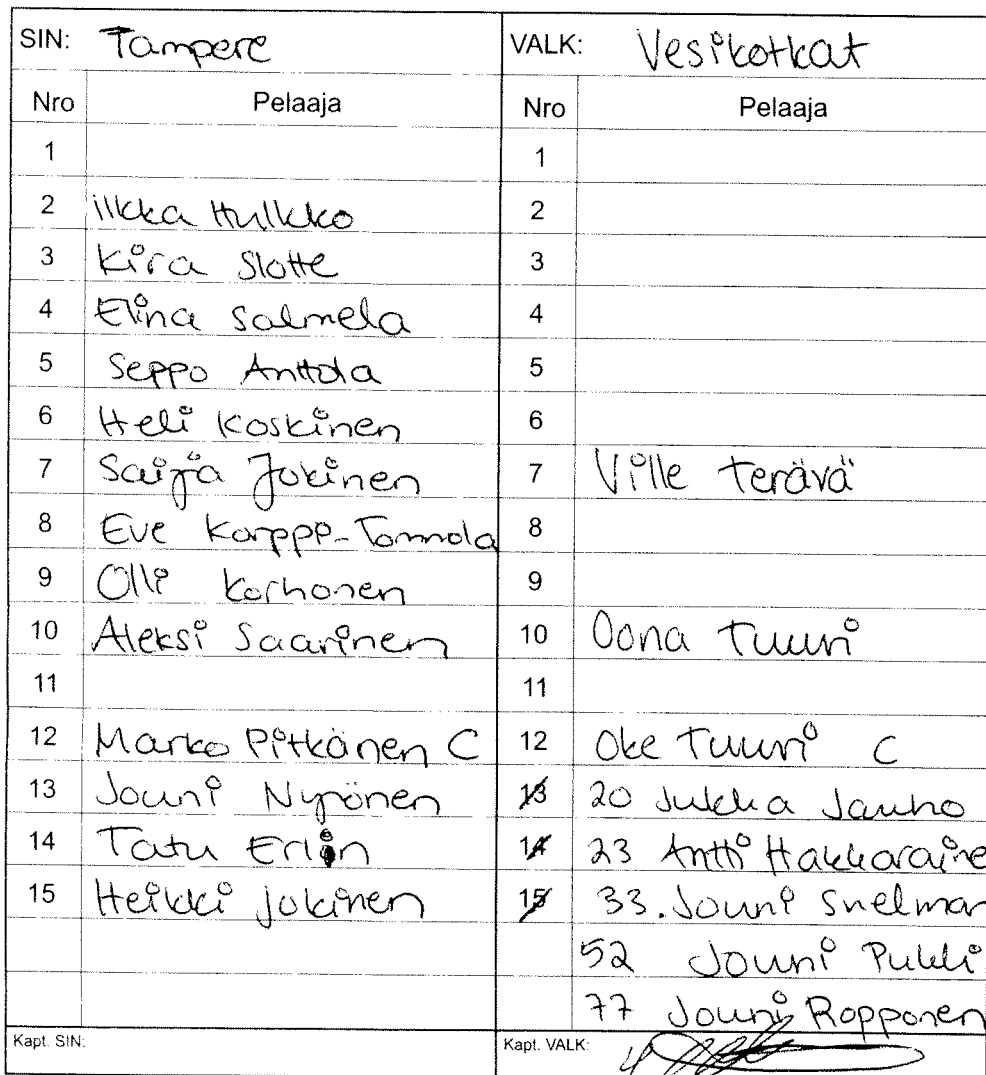 SIN: Tampere VALK: Vesikotkat
Nro Pelaaja Nro Pelaaja
1 1
2 ilkka Hulkko 2
3 Kira Slotte 3
4 Elina Salmela 4
5 Seppo Anttola 5
6 Heli Koskinen 6
7 Saija Jokinen 7 Ville Terävä
8 Eve Karppi-Tommola 8
9 Olli Korhonen 9
10 Aleksi Saarinen 10 Oona Tuuri
11 11
12 Marko Pitkänen C 12 Oke Tuuri C
13 Jouni Nyrönen 13 20 Jukka Jauho
14 Tatu Erlin 14 23 Antti Hakkaraine
15 Heikki Jokinen 15 33. Jouni Snelman
52 Jouni Pukki
77 Jouni Ropponen
Kapt. SIN: Kapt. VALK: